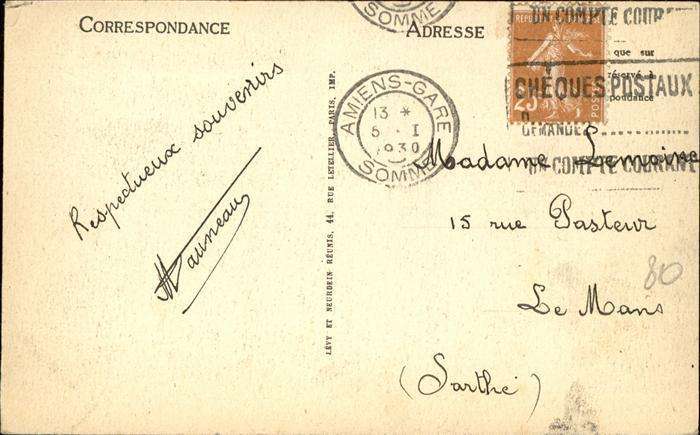 CORRESPONDANCE
ADRESSE
Respectueux souvenirs
LÉVY ET NEURDEIN RÉUNIS, 44, RUE LETELLIER, PARIS, IMP.
SOMME
AMIENS-GARE
13 *
5 - I
1930
SOMME
25
POSTES
UN COMPTE COUR
que sur
réservé à
CHÈQUES POSTAUX
DEMANDEZ
UN COMPTE COURANT
Madame Lemoine
15 rue Pasteur
Le Mans
(Sarthe)
80